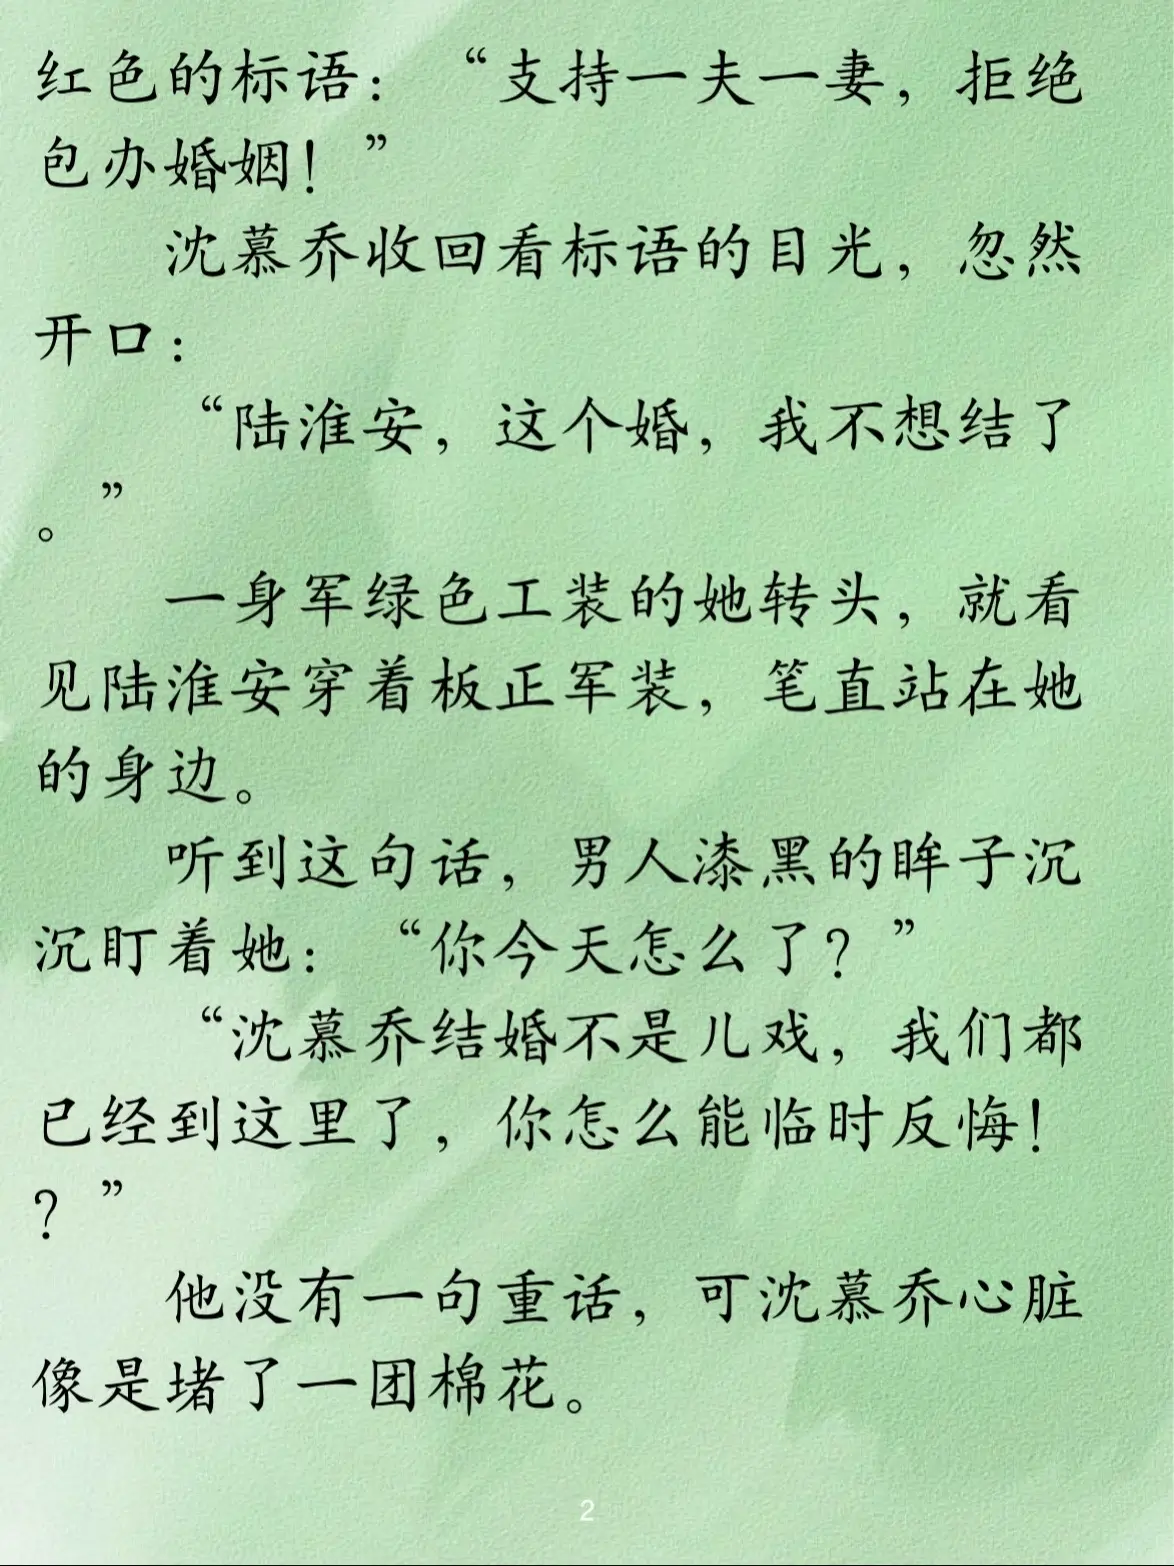 红色的标语：“支持一夫一妻，拒绝
包办婚姻！”
沈慕乔收回看标语的目光，忽然
开口：
“陆淮安，这个婚，我不想结了
。”
一身军绿色工装的她转头，就看
见陆淮安穿着板正军装，笔直站在她
的身边。
听到这句话，男人漆黑的眸子沉
沉盯着她：“你今天怎么了？”
“沈慕乔结婚不是儿戏，我们都
已经到这里了，你怎么能临时反悔！
？”
他没有一句重话，可沈慕乔心脏
像是堵了一团棉花。
2